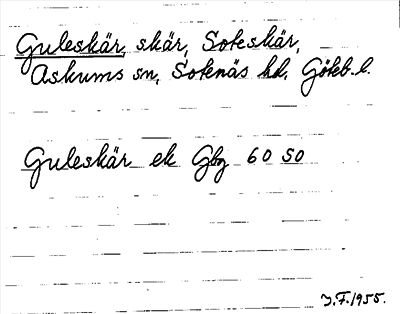 Guleskär, skär, Soteskär,
Askums sn, Sotenäs hd. Göteb. l.
Guleskär ek Gbg 60 SO
J.F. 1955.